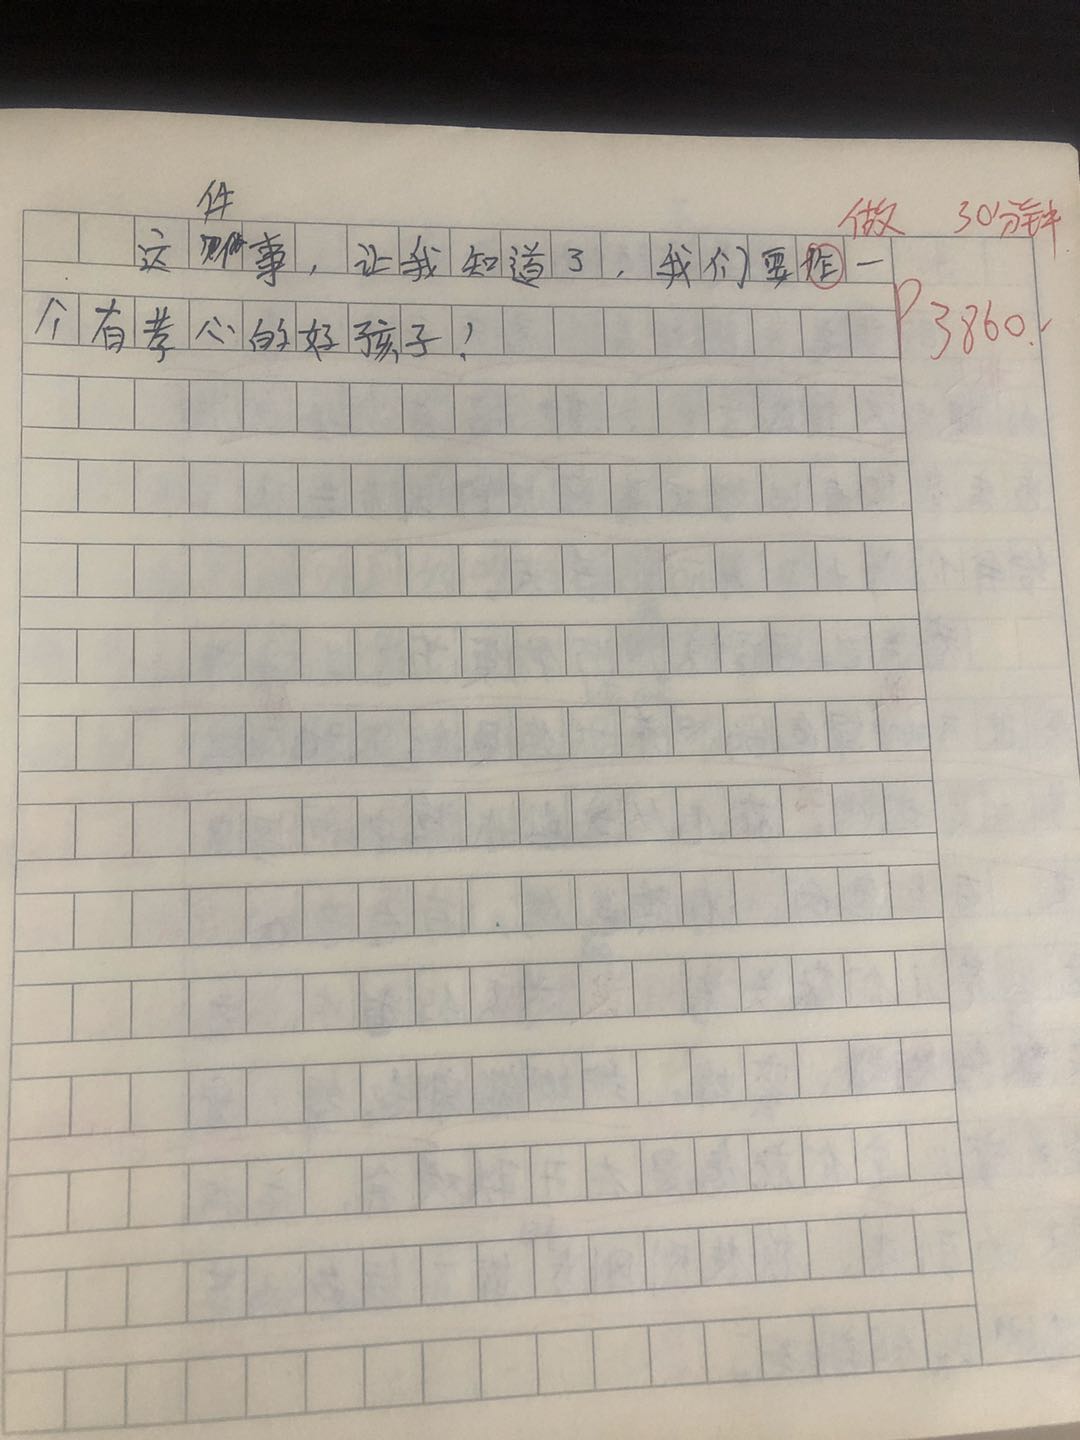 件
做 30分钟
这事，让我知道了，我们要作一
个有孝心的好孩子！
3860.